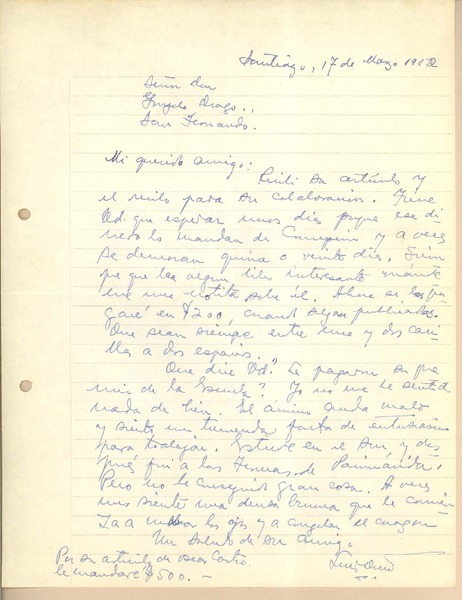 Santiago, 17 de Marzo 19
Señor don
Gonzalo Drago.,
San Fernando.
Mi querido amigo:
Recibí su artículo y
el recibo para su colaboración. Tiene
Ud. que esperar unos días porque ese di-
nero lo mandan de Concepción y a veces
se demoran quince o veinte días. Siem-
pre que lea algún libro interesante mánde-
me una notita sobre él. Ahora se las pa-
garé en $200, cuando sean publicadas.
Que sean siempre entre una y dos cari-
llas a dos espacios.
Que dice Ud? Le pagaron su pre-
mio de la Escuela? Yo no me he sentido
nada de bien. El ánimo anda malo
y siento una tremenda falta de entusiasmo
para trabajar. Estuve en el Sur y des-
pués fui a las Termas de Panimávida.
Pero no he conseguido gran cosa. A veces
uno siente una densa bruma que le comien-
za a los ojos y a el corazón
Un saludo de su amigo,
Por su artículo de Oscar Castro
le mandaré $500.—